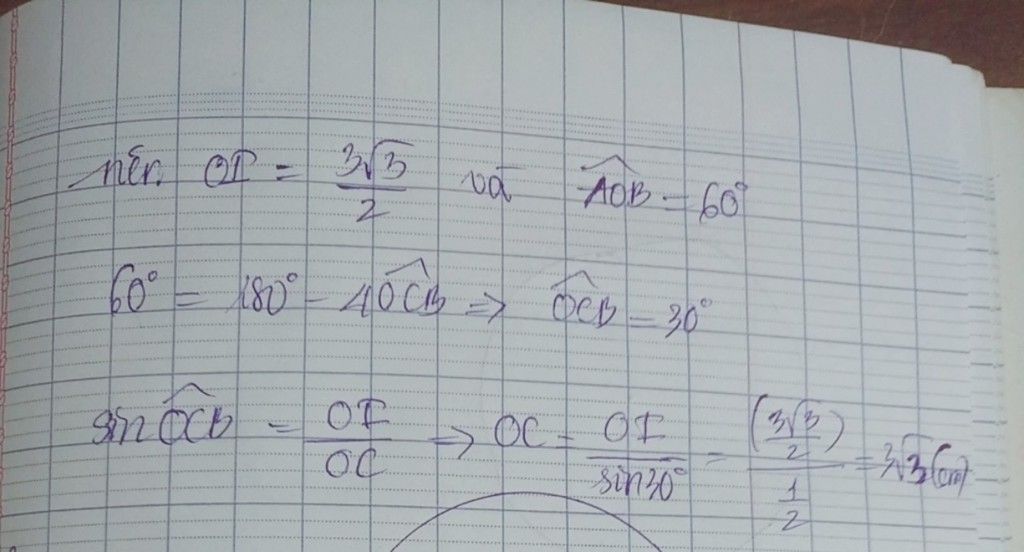 nên OI = 3√3/2 và \widehat{AOB} = 60°
60° = 180° - 4\widehat{OCB} => \widehat{OCB} = 30°
sin \widehat{OCB} = OI/OC => OC = OI/sin30° = (3√3/2)/(1/2) = 3√3 (cm)